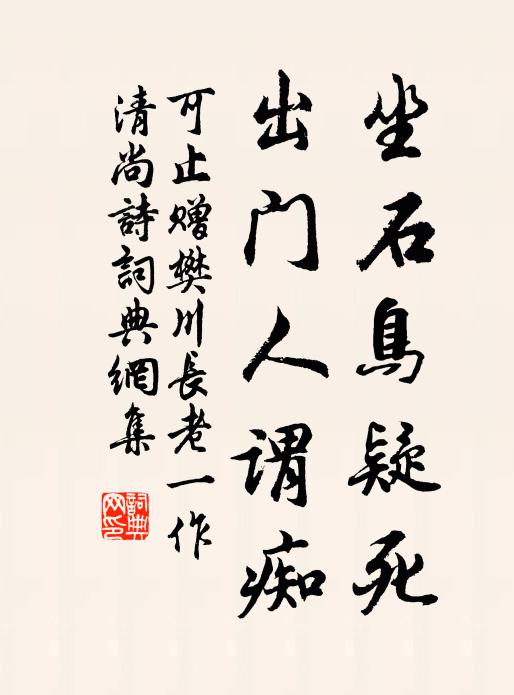 坐石鳥疑死
出门人谓痴
可止赠樊川長老一作
清尚詩詞典網集
詞典
网印